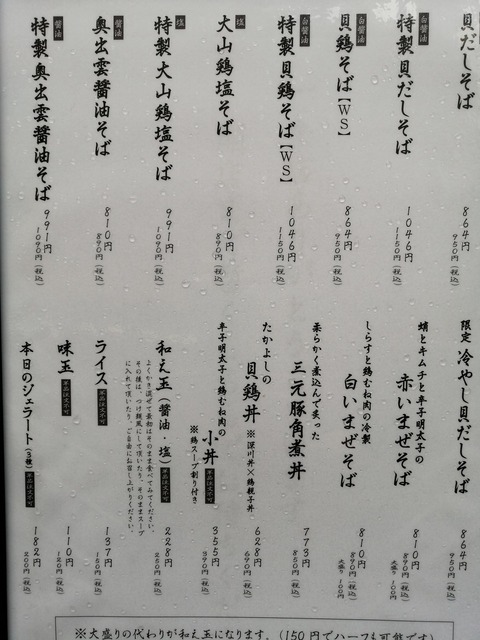 貝だしそば
864円
950円(税込)
白醤油
特製貝だしそば
1046円
1150円(税込)
白醤油
貝鶏そば【WS】
864円
950円(税込)
白醤油
特製貝鶏そば【WS】
1046円
1150円(税込)
塩
大山鶏塩そば
810円
890円(税込)
塩
特製大山鶏塩そば
991円
1090円(税込)
醤油
奥出雲醤油そば
810円
890円(税込)
醤油
特製奥出雲醤油そば
991円
1090円(税込)
限定 冷やし貝だしそば
864円
950円(税込)
蛸とキムチと辛子明太子の
赤いまぜそば
810円
890円(税込)
大盛り 100円
しらすと鶏むね肉の冷製
白いまぜそば
810円
890円(税込)
大盛り 100円
柔らかく煮込んで炙った
三元豚角煮丼
773円
850円(税込)
たかよしの
貝鶏丼 ※深川丼×鶏親子丼
628円
690円(税込)
辛子明太子と鶏むね肉の
小丼 単品注文不可
※鶏スープ割り付き
355円
390円(税込)
和え玉(醤油・塩) 単品注文不可
よくかき混ぜて最初はそのまま食べてみてください。
その後は、つけ麺風にして頂いたり、そのままスープ
に入れて頂いたり、ご自由にお召し上がりください。
228円
250円(税込)
ライス 単品注文不可
137円
150円(税込)
味玉 単品注文不可
110円
120円(税込)
本日のジェラート(3種) 単品注文不可
182円
200円(税込)
※大盛りの代わりが和え玉になります。(150円でハーフも可能です)